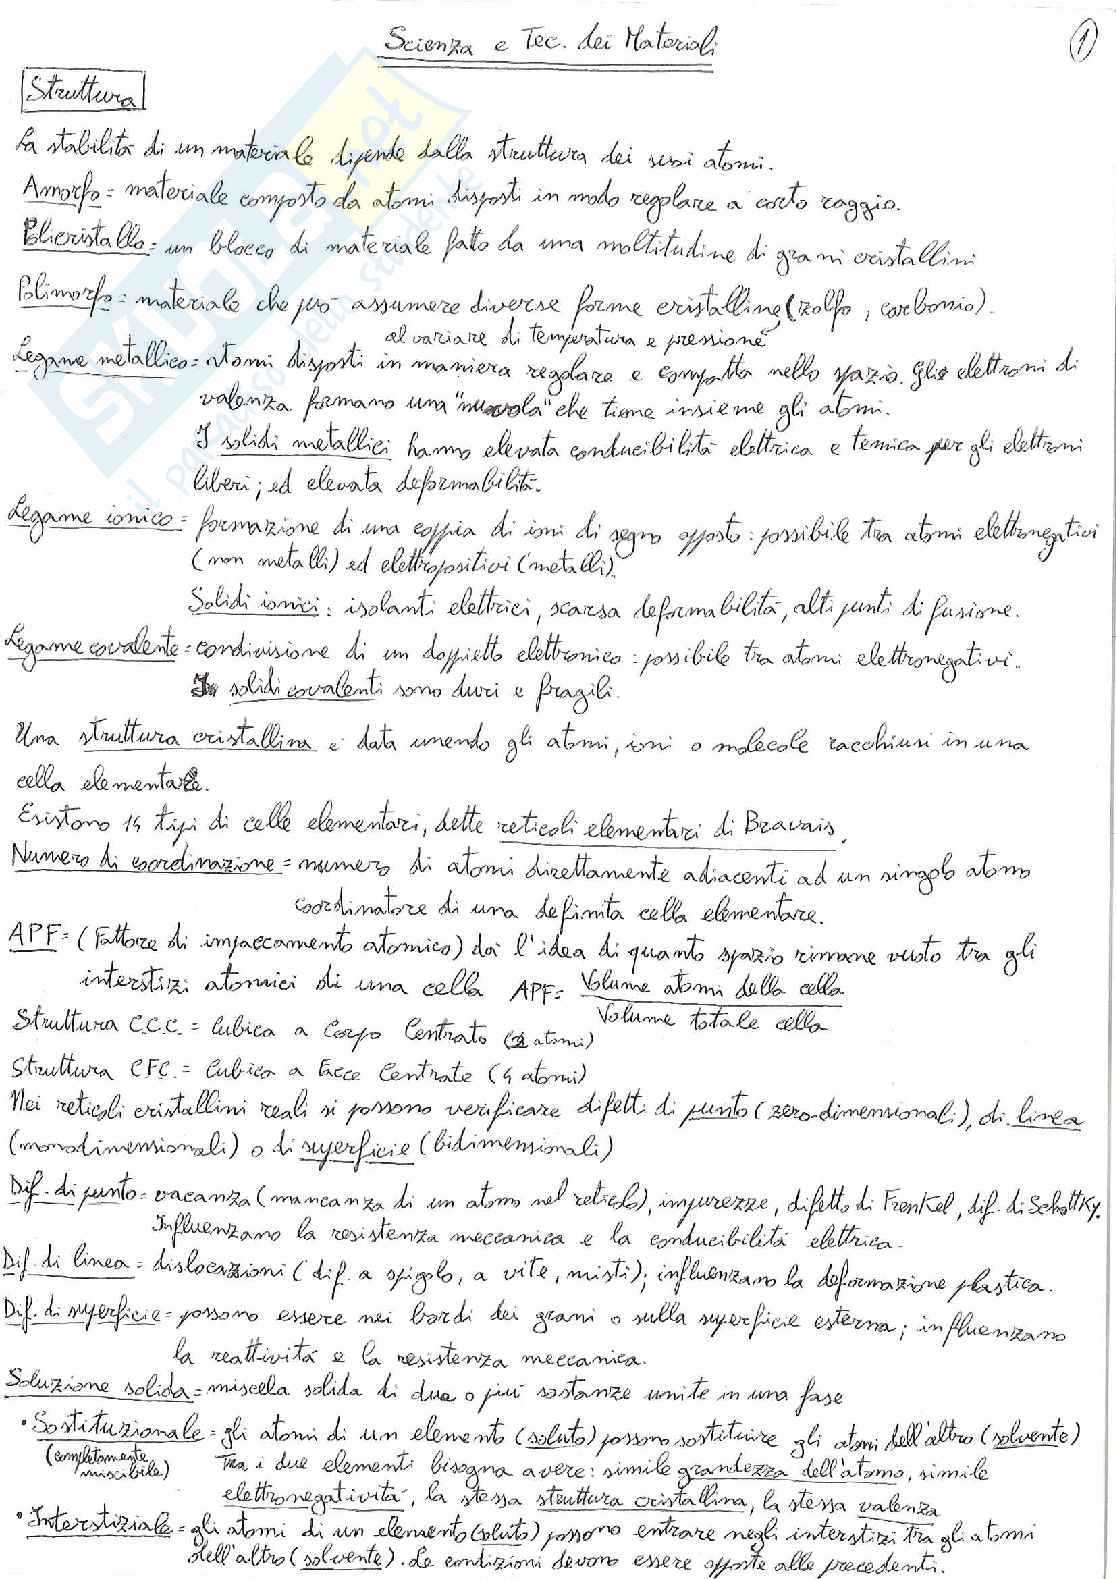 Scienza e Tec. dei Materiali
1
Struttura
La stabilità di un materiale dipende dalla struttura dei suoi atomi.
Amorfo = materiale composto da atomi disposti in modo regolare a corto raggio.
Policristallo = un blocco di materiale fatto da una moltitudine di grani cristallini
Polimorfo = materiale che può assumere diverse forme cristalline (zolfo, carbonio).
al variare di temperatura e pressione
Legame metallico = atomi disposti in maniera regolare e compatta nello spazio. Gli elettroni di
valenza formano una "nuvola" che tiene insieme gli atomi.
I solidi metallici hanno elevata conducibilità elettrica e temica per gli elettroni
liberi; ed elevata deformabilità.
Legame ionico = formazione di una coppia di ioni di segno opposto: possibile tra atomi elettronegativi
(non metalli) ed elettropositivi (metalli).
Solidi ionici: isolanti elettrici, scarsa deformabilità, alti punti di fusione.
Legame covalente = condivisione di un doppietto elettronico: possibile tra atomi elettronegativi.
I solidi covalenti sono duri e fragili.
Una struttura cristallina è data unendo gli atomi, ioni o molecole racchiusi in una
cella elementare.
Esistono 14 tipi di celle elementari, dette reticoli elementari di Bravais.
Numero di coordinazione = numero di atomi direttamente adiacenti ad un singolo atomo
coordinatore di una definita cella elementare.
APF = (Fattore di impaccamento atomico) dà l'idea di quanto spazio rimane vuoto tra gli
interstizi atomici di una cella APF = Volume atomi della cella
Volume totale cella
Struttura C.C.C. = Cubica a Corpo Centrato (2 atomi)
Struttura CFC. = Cubica a Facce Centrate (4 atomi)
Nei reticoli cristallini reali si possono verificare difetti di punto (zero-dimensionali), di linea
(monodimensionali) o di superficie (bidimensionali)
Dif. di punto = vacanza (mancanza di un atomo nel reticolo), impurezze, difetto di Frenkel, dif. di Schottky.
Influenzano la resistenza meccanica e la conducibilità elettrica.
Dif. di linea = dislocazioni (dif. a spigolo, a vite, misti); influenzano la deformazione plastica.
Dif. di superficie = possono essere nei bordi dei grani o sulla superficie esterna; influenzano
la reattività e la resistenza meccanica.
Soluzione solida = miscela solida di due o più sostanze unite in una fase
• Sostituzionale = gli atomi di un elemento (soluto) possono sostituire gli atomi dell'altro (solvente)
(completamente miscibile) Tra i due elementi bisogna avere: simile grandezza dell'atomo, simile
elettronegatività, la stessa struttura cristallina, la stessa valenza
• Interstiziale = gli atomi di un elemento (soluto) possono entrare negli interstizi tra gli atomi
dell'altro (solvente). Le condizioni devono essere opposte alle precedenti.